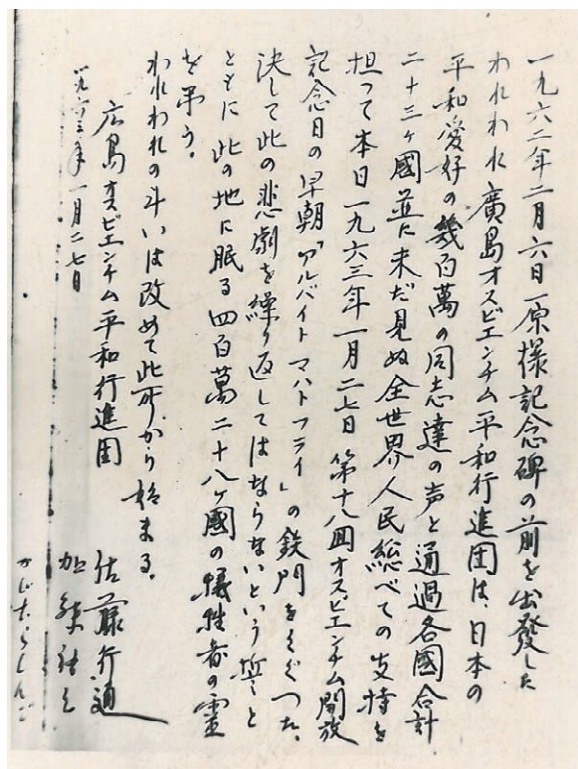 一九六二年二月六日原爆記念碑の前を出發した
われわれ廣島オスビエンチム平和行進団は、日本の
平和愛好の幾百萬の同志達の声と通過各國合計
二十三ヶ國並に未だ見ぬ全世界人民総べての支持を
担って本日一九六三年一月二七日第十八回オスビエンチム開放
記念日の早朝「アルバイトマハトフライ」の鉄門をくぐった。
決して此の悲劇を繰り返してはならないという誓と
ともに此の地に眠る四百萬二十八ヶ國の犠牲者の霊
を弔う。
われわれの斗いは改めて此所から始まる。
広島オスビエンチム平和行進団
一九六三年一月二七日
佐藤行通
加藤祐三